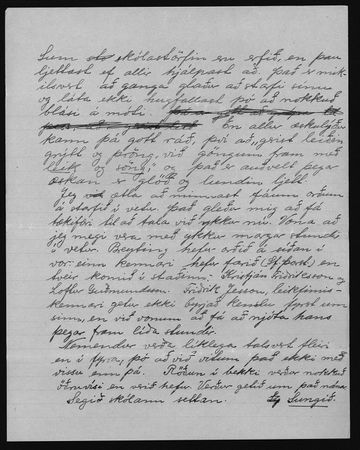 Sum skólastörfin eru erfið, en þau
ljettast ef allir hjálpast að. Það er mik-
ilsvert að ganga glaður að starfi sínu
og láta ekki hugfallast þó að nokkuð
blási á móti. En allur æskulýður
kann þá gott ráð, því að "greið leiðin
grjót og þröng, við göngum fram með
leik og söng", og það er auðvelt þegar
æskan er glöð og lundin ljett.
Jeg ætla að minnast fáum orðum
á starfið í vetur. Það gleður mig að fá
tækifæri til að tala við ykkur nú. Vona að
jeg megi vera með ykkur margar stundir
í vetur. Breyting hefur orðið á síðan í
vor: einn kennari hefur farið (Sf. post.) en
tveir komið í staðinn. Kristján Friðriksson og
Loftur Guðmundsson. Friðrik Jesson, leikfimis-
kennari getur ekki byrjað kenslu fyrst um
sinn, en við vonum að fá að njóta hans
þegar fram líða stundir.
Nemendur verða líklega talsvert fleiri
en í fyrra, þó að við vitum það ekki með
vissu enn þá. Röðun í bekki verður nokkuð
öðruvísi en verið hefur. Verður getið um það nánar.
Segið skólann settan. Sungið.